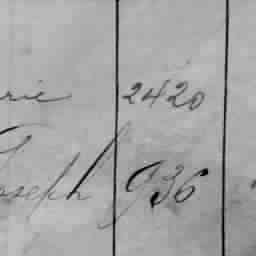 rie 2420
Joseph 936